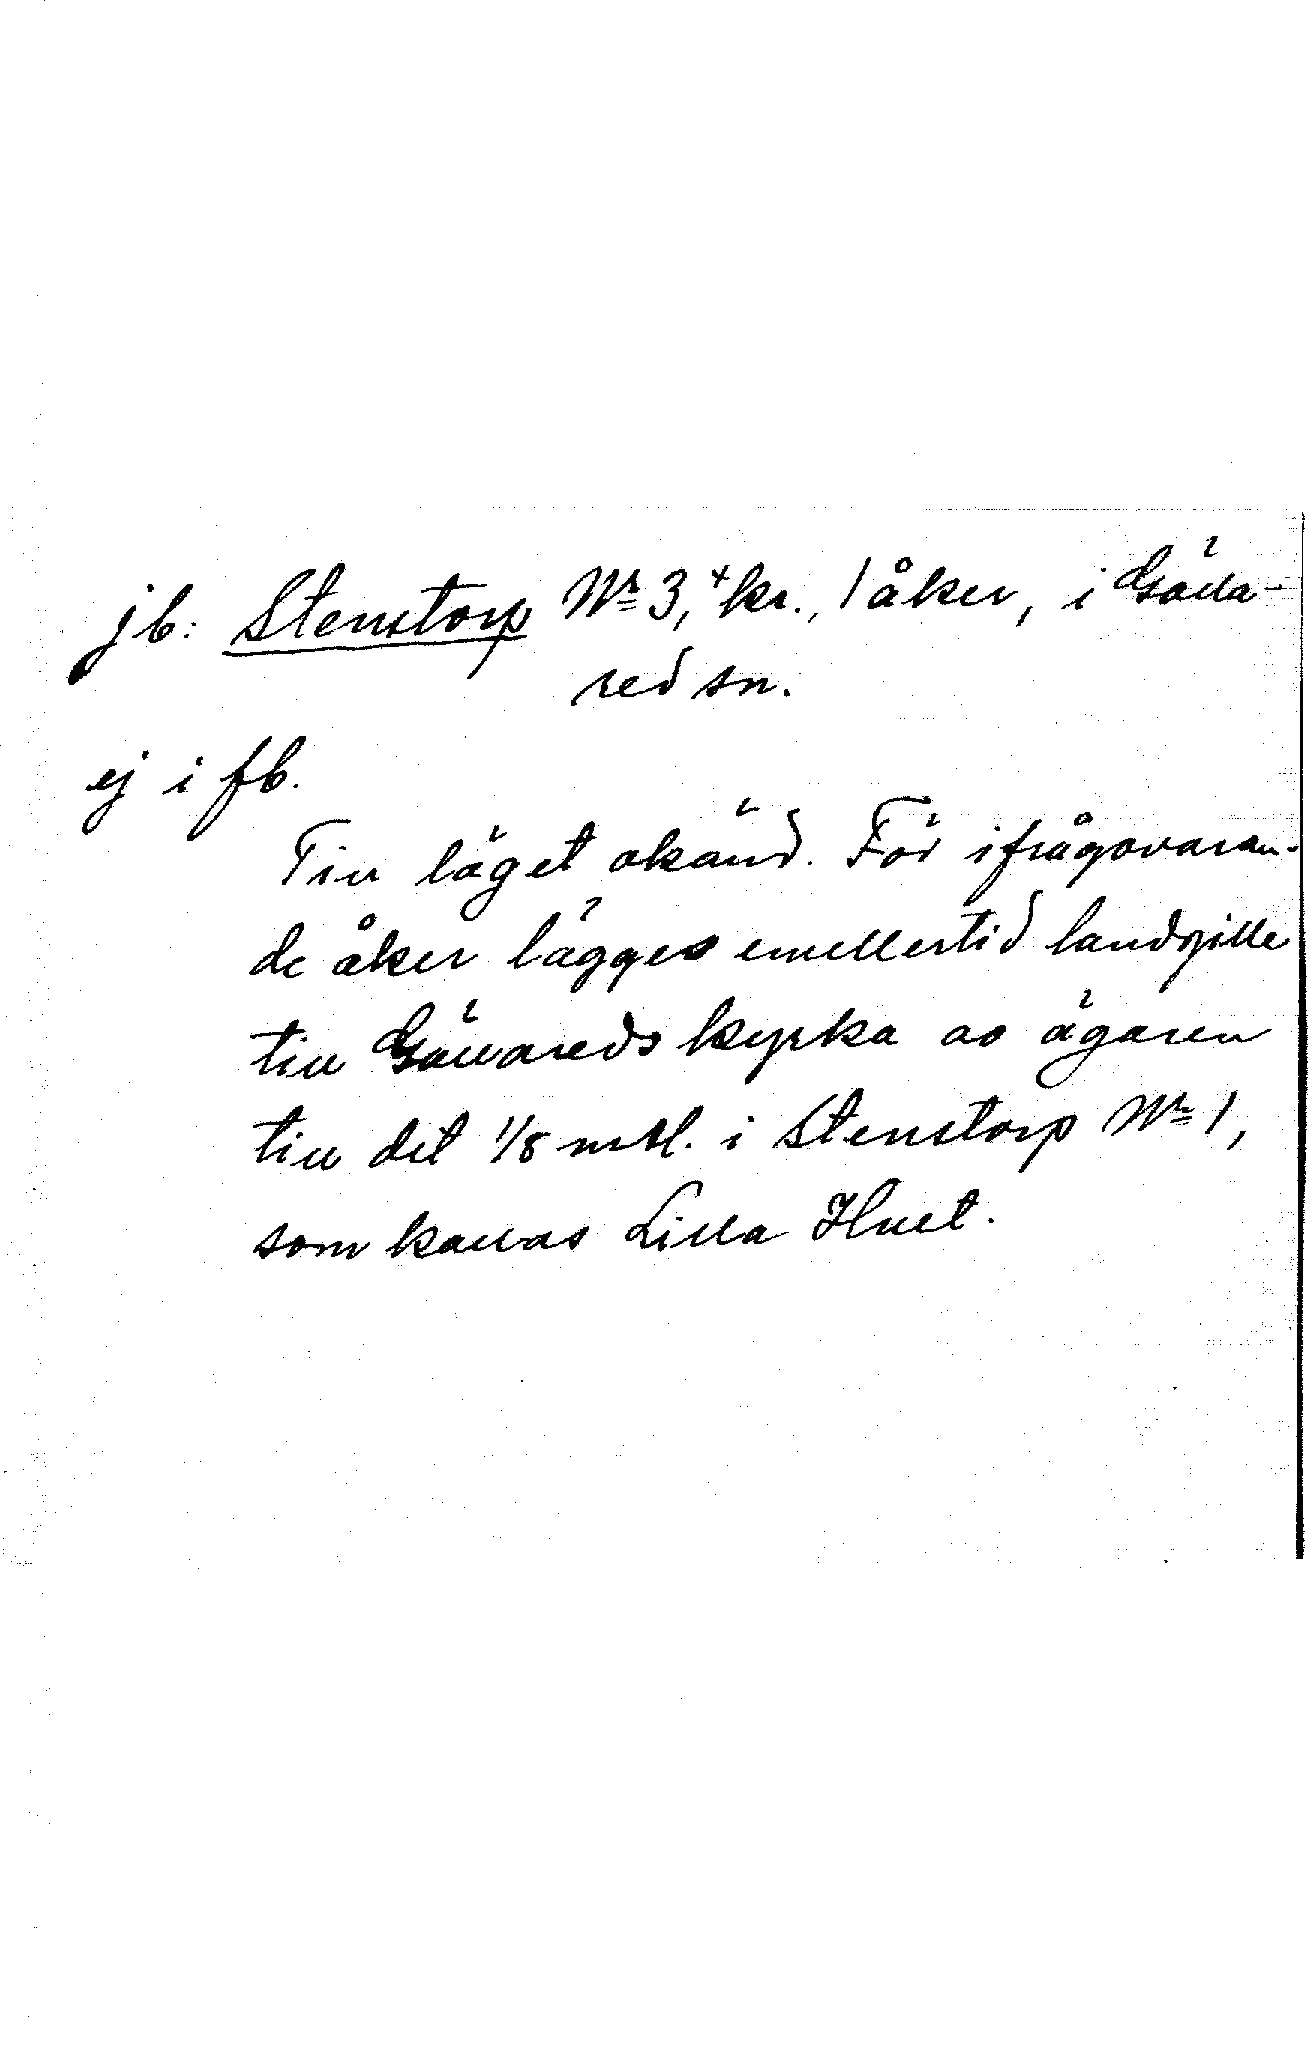 jb: Stenstorp No 3, + kr., 1 åker, i Gälla-
red sn.
ej i fb.
Till läget okänd. För ifrågavaran-
de åker lägges emellertid landgille
till Gällareds kyrka av ägaren
till det 1/8 mtl. i Stenstorp No 1,
som kallas Lilla Hult.